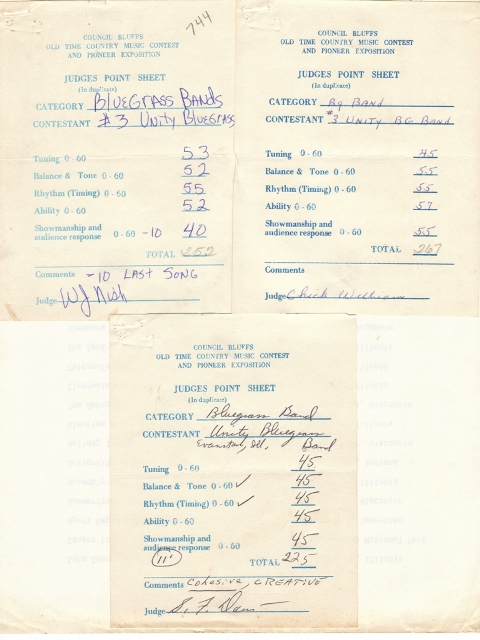 744
COUNCIL BLUFFS
OLD TIME COUNTRY MUSIC CONTEST
AND PIONEER EXPOSITION
JUDGES POINT SHEET
(In duplicate)
CATEGORY BLUEGRASS BANDS
CONTESTANT #3 UNITY BLUEGRASS
Tuning 0 - 60 53
Balance & Tone 0 - 60 52
Rhythm (Timing) 0 - 60 55
Ability 0 - 60 52
Showmanship and
audience response 0 - 60 -10 40
TOTAL 252
Comments -10 LAST SONG
Judge WJ Nish
COUNCIL BLUFFS
OLD TIME COUNTRY MUSIC CONTEST
AND PIONEER EXPOSITION
JUDGES POINT SHEET
(In duplicate)
CATEGORY Bg BAND
CONTESTANT #3 UNITY BG BAND
Tuning 0 - 60 45
Balance & Tone 0 - 60 55
Rhythm (Timing) 0 - 60 55
Ability 0 - 60 57
Showmanship and
audience response 0 - 60 55
TOTAL 267
Comments
Judge Chick Williams
COUNCIL BLUFFS
OLD TIME COUNTRY MUSIC CONTEST
AND PIONEER EXPOSITION
JUDGES POINT SHEET
(In duplicate)
CATEGORY Bluegrass Band
CONTESTANT Unity Bluegrass
Evanston, Ill. Band
Tuning 0 - 60 45
Balance & Tone 0 - 60 ✓ 45
Rhythm (Timing) 0 - 60 ✓ 45
Ability 0 - 60 45
Showmanship and
audience response 0 - 60 45
11' TOTAL 225
Comments Cohesive, CREATIVE
Judge S. F. Davis